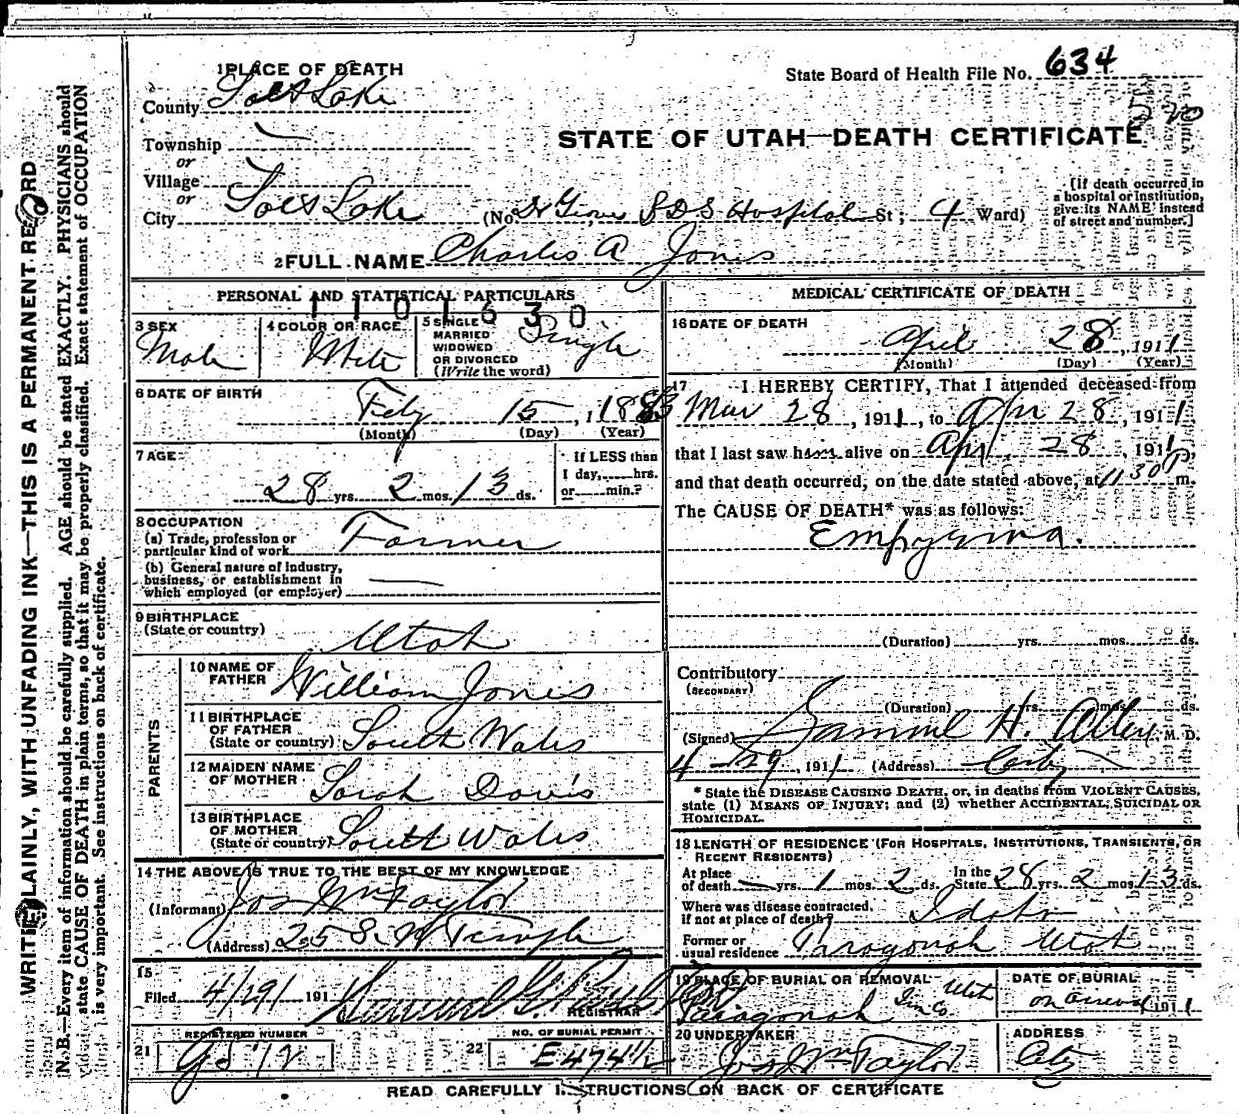 1 PLACE OF DEATH
State Board of Health File No. 634
County Salt Lake
520
STATE OF UTAH—DEATH CERTIFICATE
Township
or
Village
or
City Salt Lake
(No. Dr Groves L D S Hospital St; 4 Ward)
[If death occurred in
a hospital or institution,
give its NAME instead
of street and number.]
2 FULL NAME Charles A Jones
PERSONAL AND STATISTICAL PARTICULARS
1101630
3 SEX
Male
4 COLOR OR RACE
White
5 SINGLE
MARRIED
WIDOWED
OR DIVORCED
(Write the word)
Single
6 DATE OF BIRTH
Feby 15, 1883
(Month) (Day) (Year)
7 AGE
28 yrs. 2 mos. 13 ds.
If LESS than
1 day, hrs.
or min.?
8 OCCUPATION
(a) Trade, profession or
particular kind of work Farmer
(b) General nature of industry,
business, or establishment in
which employed (or employer)
9 BIRTHPLACE
(State or country) Utah
PARENTS
10 NAME OF
FATHER William Jones
11 BIRTHPLACE
OF FATHER
(State or country) South Wales
12 MAIDEN NAME
OF MOTHER Sarah Davis
13 BIRTHPLACE
OF MOTHER
(State or country) South Wales
14 THE ABOVE IS TRUE TO THE BEST OF MY KNOWLEDGE
(Informant) Jos Wm Taylor
(Address) 25 S. W Temple
15
Filed 4/29/ 191
REGISTRAR
REGISTERED NUMBER
21
NO. OF BURIAL PERMIT
22 E 474 1/2
MEDICAL CERTIFICATE OF DEATH
16 DATE OF DEATH
April 28, 1911
(Month) (Day) (Year)
17 I HEREBY CERTIFY, That I attended deceased from
Mar 28, 1911, to Apr 28, 1911,
that I last saw him alive on Apr 28, 1911,
and that death occurred, on the date stated above, at 11 30 P m.
The CAUSE OF DEATH* was as follows:
Empyema.
(Duration) yrs. mos. ds.
Contributory
(SECONDARY)
(Duration) yrs. mos. ds.
(Signed) Samuel H. Allen M. D.
4-29, 1911 (Address) City
* State the DISEASE CAUSING DEATH, or, in deaths from VIOLENT CAUSES,
state (1) MEANS OF INJURY; and (2) whether ACCIDENTAL, SUICIDAL OR
HOMICIDAL.
18 LENGTH OF RESIDENCE (FOR HOSPITALS, INSTITUTIONS, TRANSIENTS, OR
RECENT RESIDENTS)
At place
of death yrs. 1 mos. 2 ds.
In the
State 28 yrs. 2 mos. 13 ds.
Where was disease contracted,
if not at place of death? Idaho
Former or
usual residence Paragonah Utah
19 PLACE OF BURIAL OR REMOVAL
Paragonah Iron Co. Utah
DATE OF BURIAL
on arrival 191
20 UNDERTAKER
Jos Wm Taylor
ADDRESS
City
READ CAREFULLY INSTRUCTIONS ON BACK OF CERTIFICATE
WRITE PLAINLY, WITH UNFADING INK—THIS IS A PERMANENT RECORD
N. B.—Every item of information should be carefully supplied. AGE should be stated EXACTLY. PHYSICIANS should
state CAUSE OF DEATH in plain terms, so that it may be properly classified. Exact statement of OCCUPATION
is very important. See instructions on back of certificate.